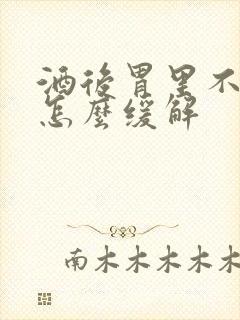 酒後胃里不
怎麼缓解
南木木木木木